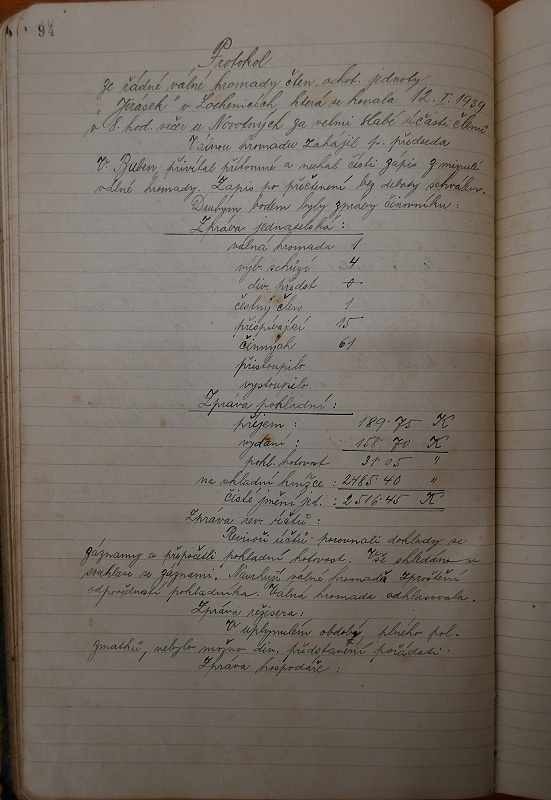 94
Protokol
ze řádné valné hromady čten. ochot. jednoty
"Jirásek" v Lochenicích, která se konala 12. I. 1939
v 8. hod. večer u Novotných za velmi slabé účasti členů
Valnou hromadu zahájil p. předseda
V. Buben, přivítal přítomné a nechal čísti zápis z minulé
valné hromady. Zápis po přečtení bez debaty schválen.
Druhým bodem byly zprávy činovníků:
Zpráva jednatelská:
valná hromada 1
výb. schůzí 4
div. předst 0
čestný člen 1
přispívající 15
činných 61
přistoupilo
vystoupilo
Zpráva pokladní:
příjem: 189·75 K
vydání: 158·70 K
pokl. hotovost 31·05 "
na vkladní knížce: 2485·40 "
čisté jmění jed.: 2516·45 K
Zpráva rev. účtů:
Revisoři účtů porovnali doklady se
záznamy a přepočetli pokladní hotovost. Vše shledáno v
souhlase se záznamí. Navrhují valné hromadě zproštění
odpovědnosti pokladníka. Valná hromada odhlasovala.
Zpráva režisera:
V uplynulém období, plného pol.
zmatků, nebylo možno div. představení pořádati.
Zpráva hospodáře: